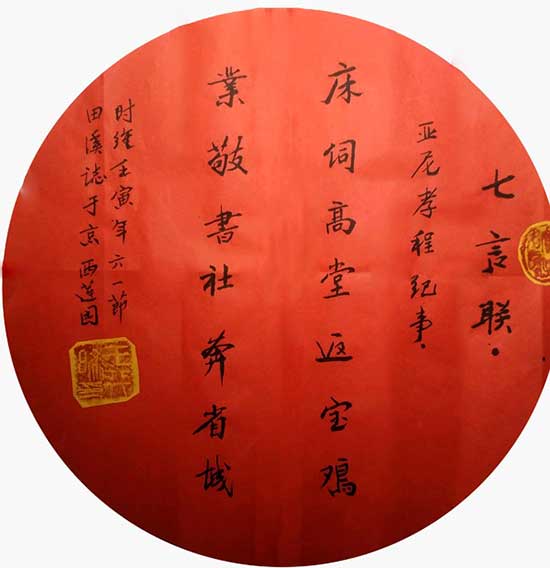 七言联。
亚尼孝程纪事。
床伺高堂返宝鸡
業敬書社奔省城
时维壬寅年六一節
田溪誌于京西莲园